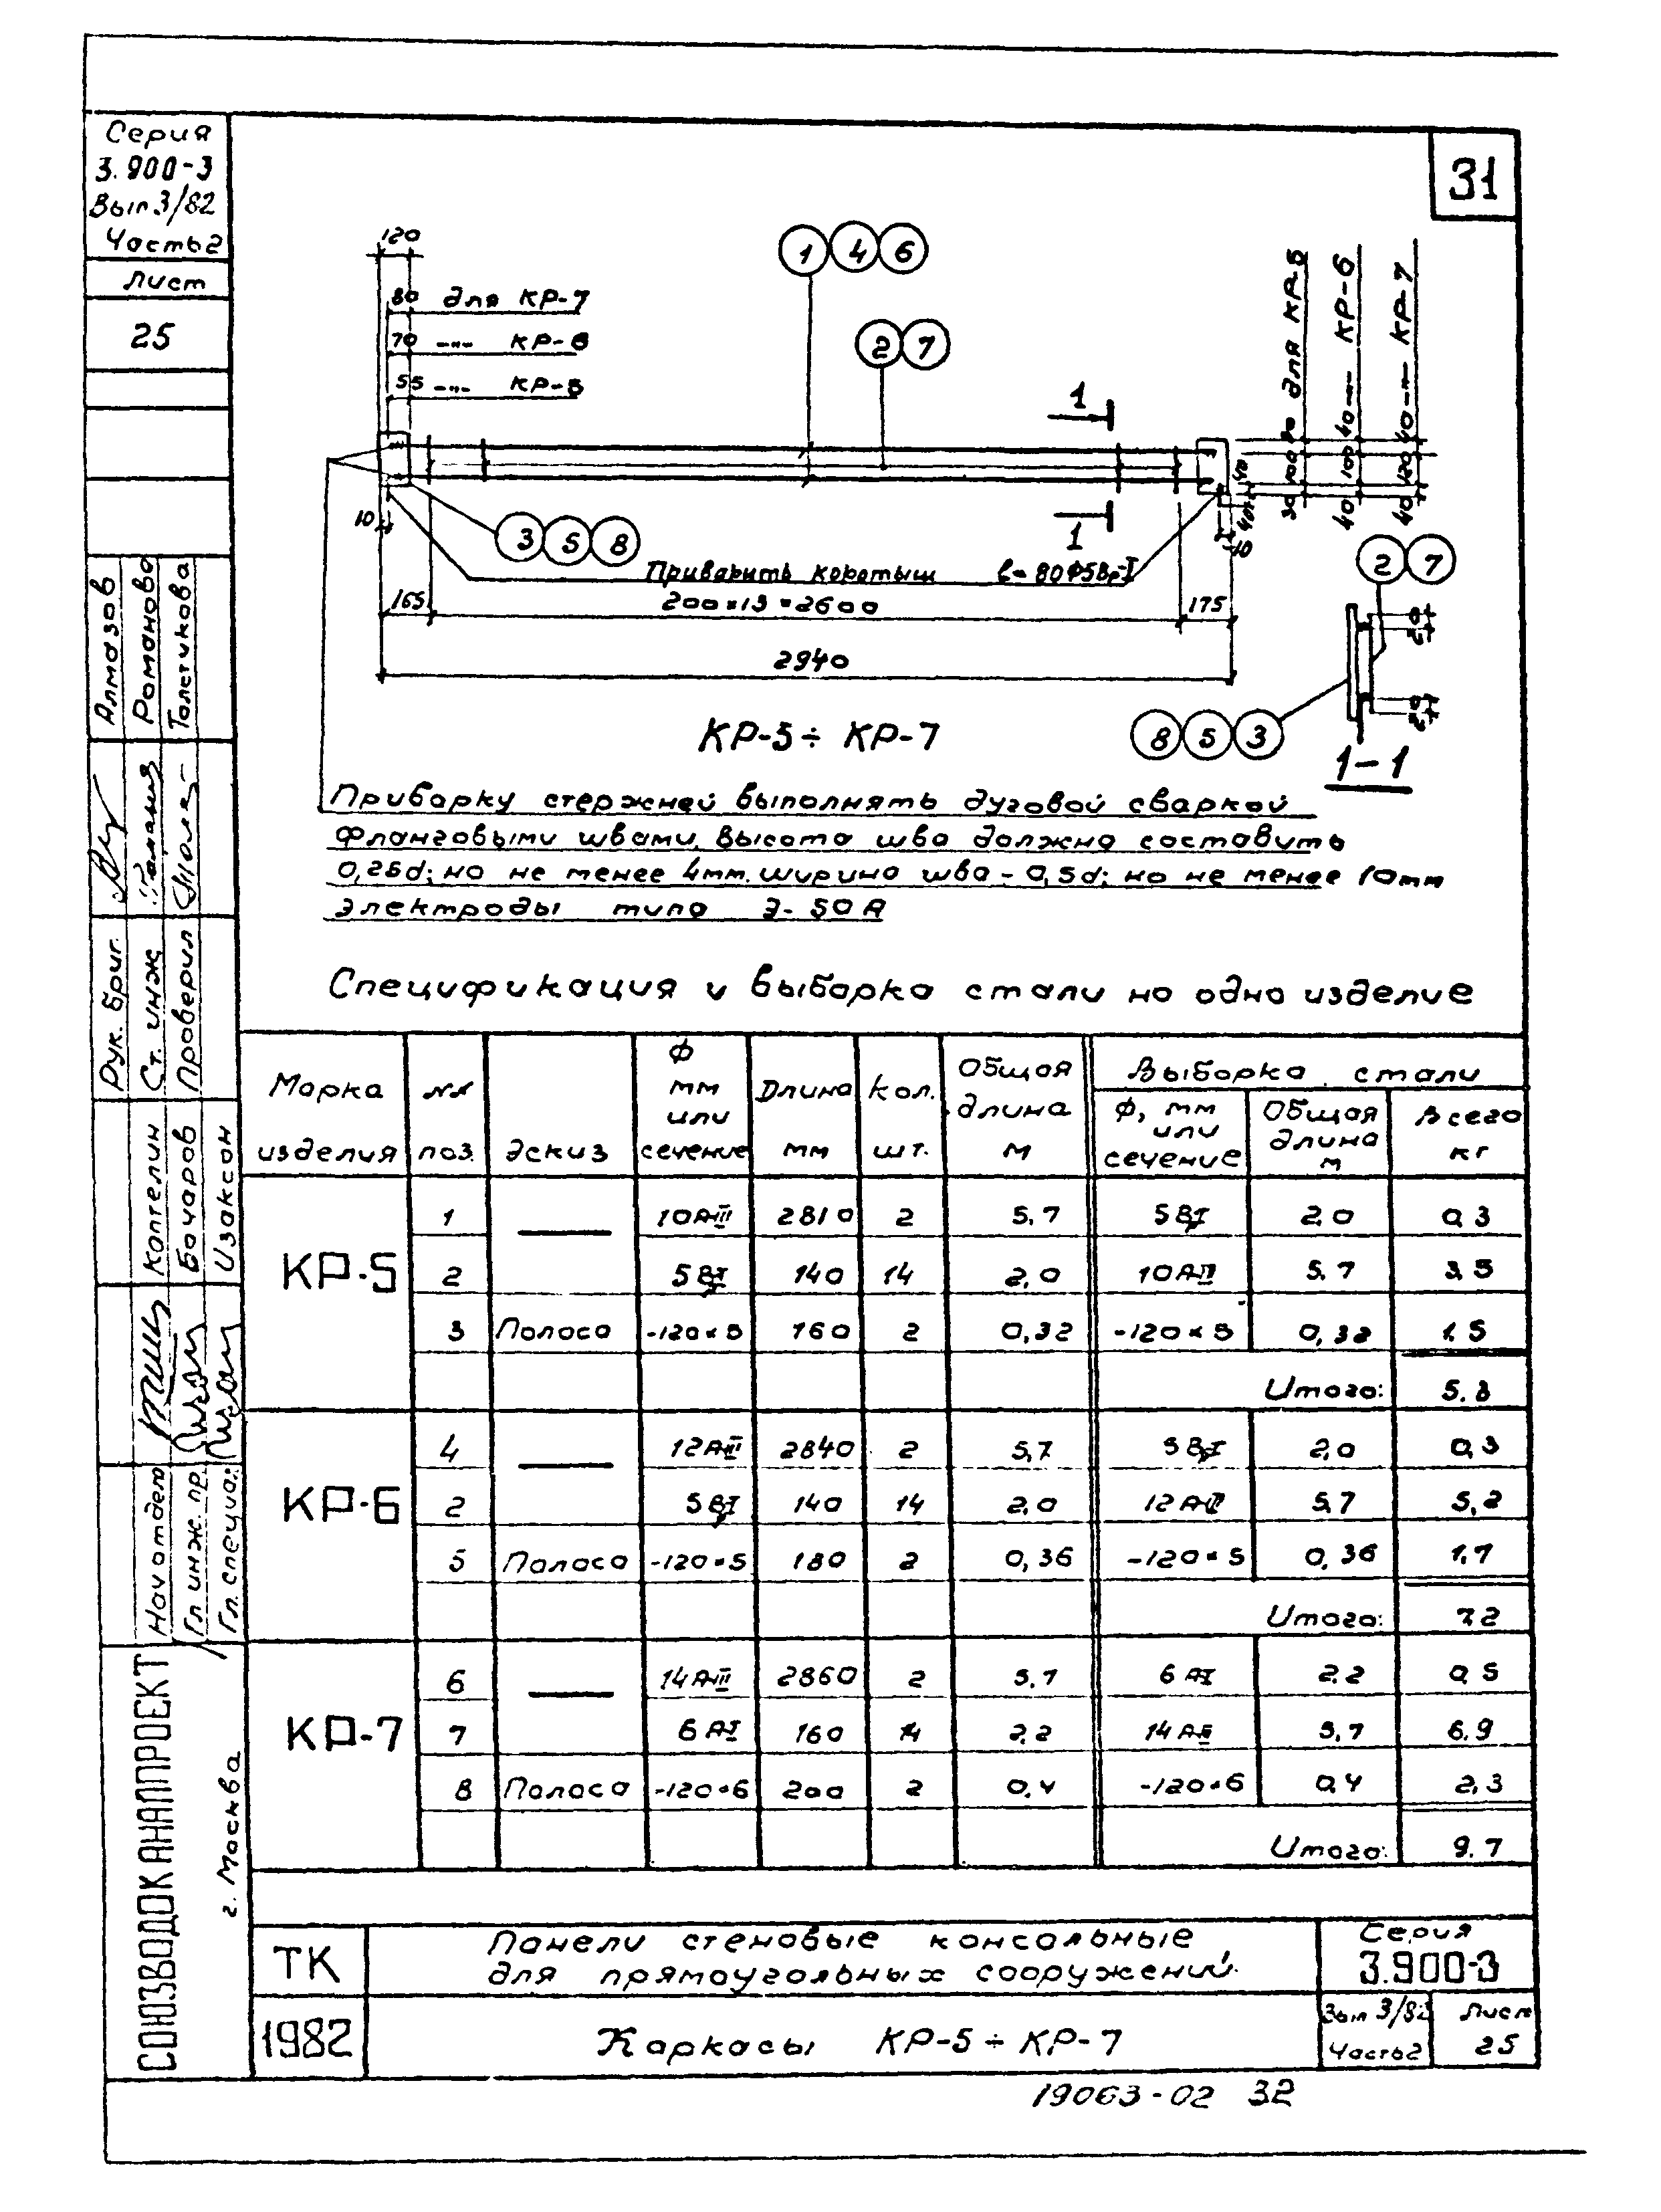 Серия
3.900-3
Вып.3/82
Часть 2
Лист
25
31
120
80 для КР-7
70 -"- КР-6
55 -"- КР-5
1 4 6
2 7
30 100 30 для КР-5
40 100 40 -"- КР-6
40 120 40 -"- КР-7
1
1
40
40
10
10
3 5 8
Приварить коротыш ℓ=80 Ф5Вр-I
165
200×13=2600
175
2940
2 7
20
20
8 5 3
1-1
КР-5÷КР-7
Приварку стержней выполнять дуговой сваркой
фланговыми швами. Высота шва должна составить
0,25d; но не менее 4мм. ширина шва - 0,5d; но не менее 10мм
Электроды типа Э-50А
Спецификация и выборка стали на одно изделие
Марка изделия | №№ поз. | Эскиз | Ф мм или сечение | Длина мм | Кол. шт. | Общая длина м | Выборка стали
Ф, мм или сечение | Общая длина м | Всего кг
КР-5
1 | 10А-III | 2810 | 2 | 5,7 | 5ВрI | 2,0 | 0,3
2 | 5ВрI | 140 | 14 | 2,0 | 10А-III | 5,7 | 3,5
3 | Полоса | -120×5 | 160 | 2 | 0,32 | -120×5 | 0,32 | 1,5
Итого: 5,3
КР-6
4 | 12А-III | 2840 | 2 | 5,7 | 5ВрI | 2,0 | 0,3
2 | 5ВрI | 140 | 14 | 2,0 | 12А-III | 5,7 | 5,2
5 | Полоса | -120×5 | 180 | 2 | 0,36 | -120×5 | 0,36 | 1,7
Итого: 7,2
КР-7
6 | 14А-III | 2860 | 2 | 5,7 | 6А-I | 2,2 | 0,5
7 | 6А-I | 160 | 14 | 2,2 | 14А-III | 5,7 | 6,9
8 | Полоса | -120×6 | 200 | 2 | 0,4 | -120×6 | 0,4 | 2,3
Итого: 9,7
Рук. бриг. Алмазов
Ст. инж Романова
Проверил Толстикова
Нач отдела Коптелин
Гл инж. пр. Бочаров
Гл. специал. Изаксон
СОЮЗВОДОКАНАЛПРОЕКТ
г. Москва
ТК
1982
Панели стеновые консольные
для прямоугольных сооружений.
Каркасы КР-5÷КР-7
Серия
3.900-3
Вып 3/82
Часть 2
Лист
25
19063-02 32